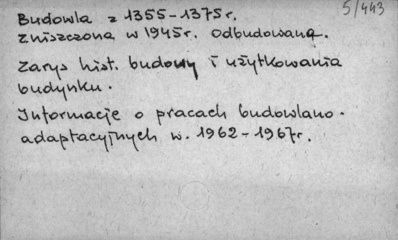 5/443
Budowla z 1355-1375r.
zniszczona w 1945r. odbudowana.
Zarys hist. budowy i użytkowania
budynku.
Informacje o pracach budowlano-
adaptacyjnych w. 1962-1967r.